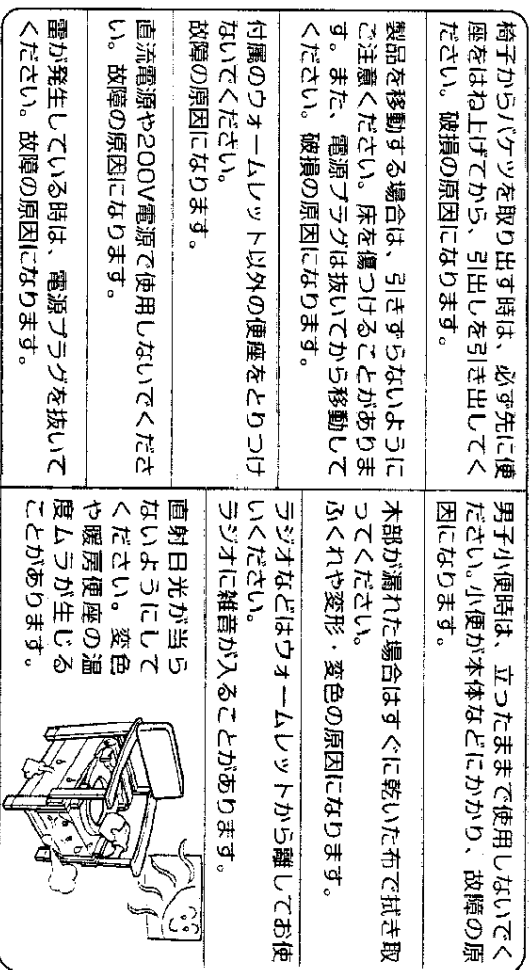 椅子からバケツを取り出す時は、必ず先に便
座をはね上げてから、引出しを引き出してく
ださい。破損の原因になります。
製品を移動する場合は、引きずらないように
ご注意ください。床を傷つけることがありま
す。また、電源プラグは抜いてから移動して
ください。破損の原因になります。
付属のウォームレット以外の便座をとりつけ
ないでください。
故障の原因になります。
直流電源や200V電源で使用しないでくださ
い。故障の原因になります。
雷が発生している時は、電源プラグを抜いて
ください。故障の原因になります。
男子小便時は、立ったままで使用しないでく
ださい。小便が本体などにかかり、故障の原
因になります。
木部が漏れた場合はすぐに乾いた布で拭き取
ってください。
ふくれや変形・変色の原因になります。
ラジオなどはウォームレットから離してお使
いください。
ラジオに雑音が入ることがあります。
直射日光が当ら
ないようにして
ください。変色
や暖房便座の温
度ムラが生じる
ことがあります。